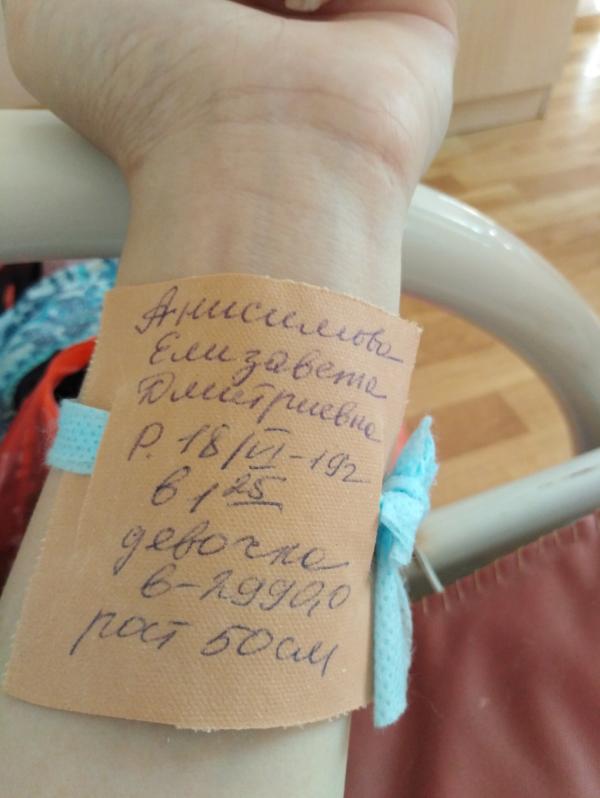 Анисимова
Елизавета
Дмитриевна
Р. 18/VI-19г
в 1 25
девочка
в-2990,0
рост 50см